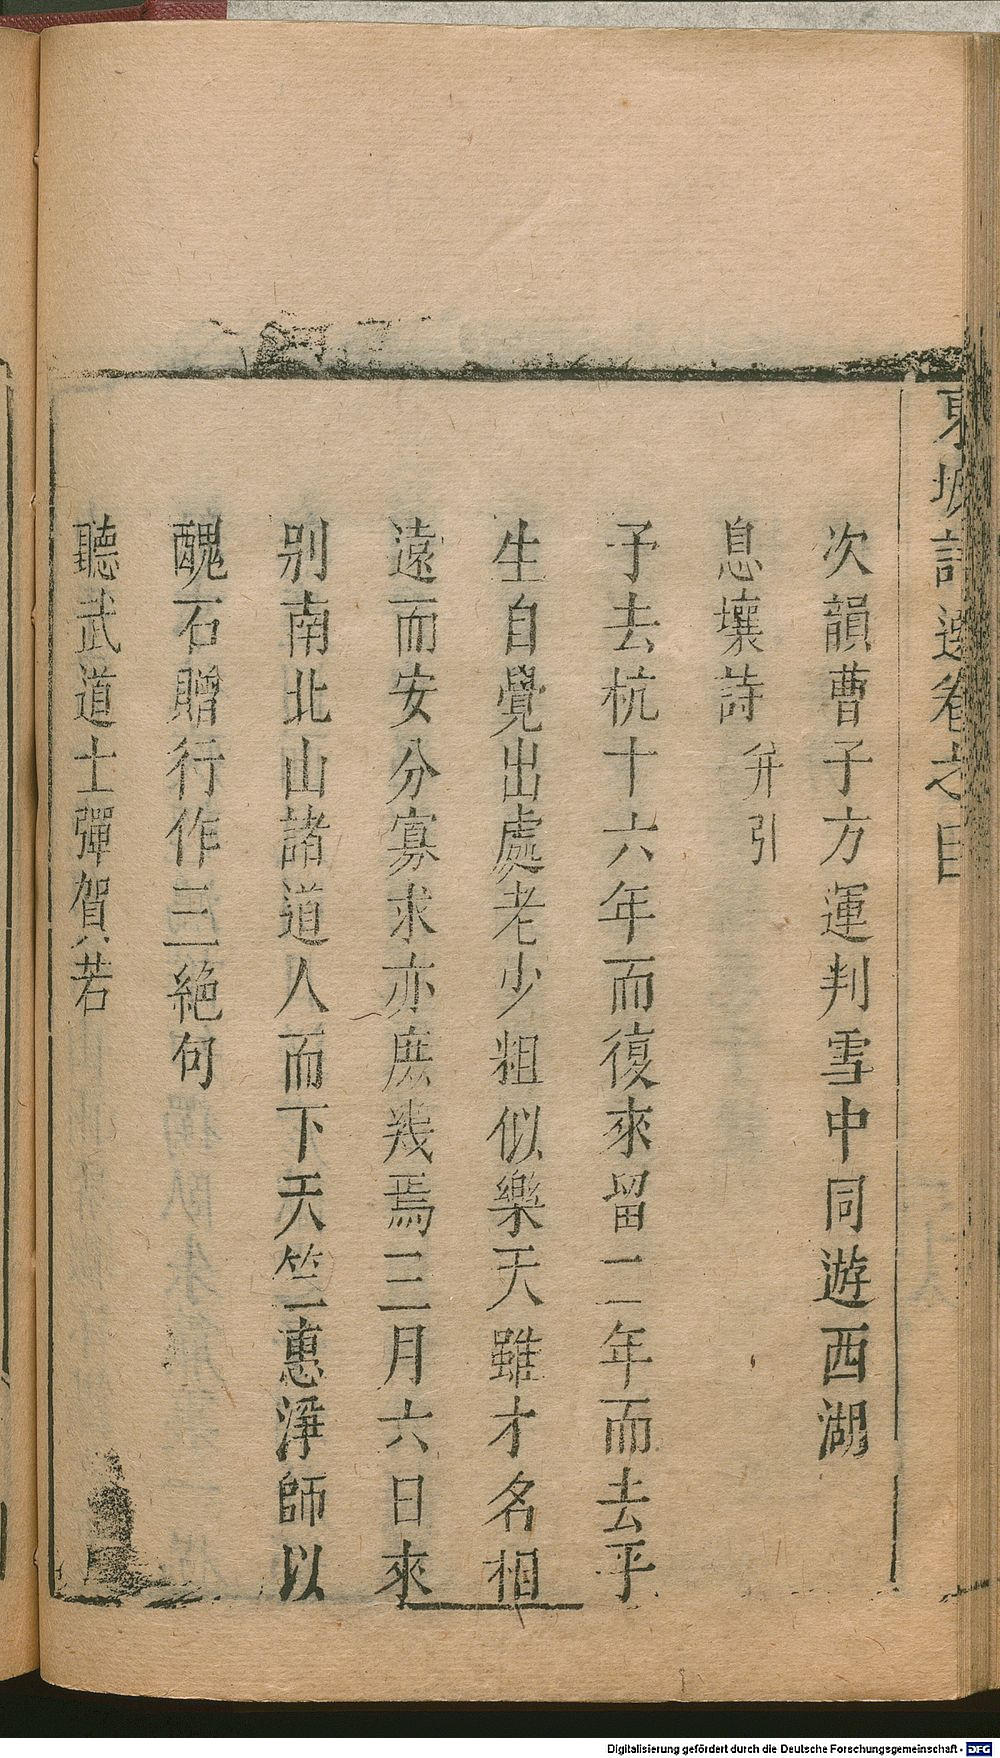 東坡詩選卷之目
次韻曹子方運判雪中同遊西湖
息壤詩 并引
予去杭十六年而復來留二年而去平
生自覺出處老少粗似樂天雖才名相
遠而安分寡求亦庶幾焉三月六日來
别南北山諸道人而下天竺惠淨師以
醜石贈行作三絕句
聽武道士彈賀若
Digitalisierung gefördert durch die Deutsche Forschungsgemeinschaft - DFG